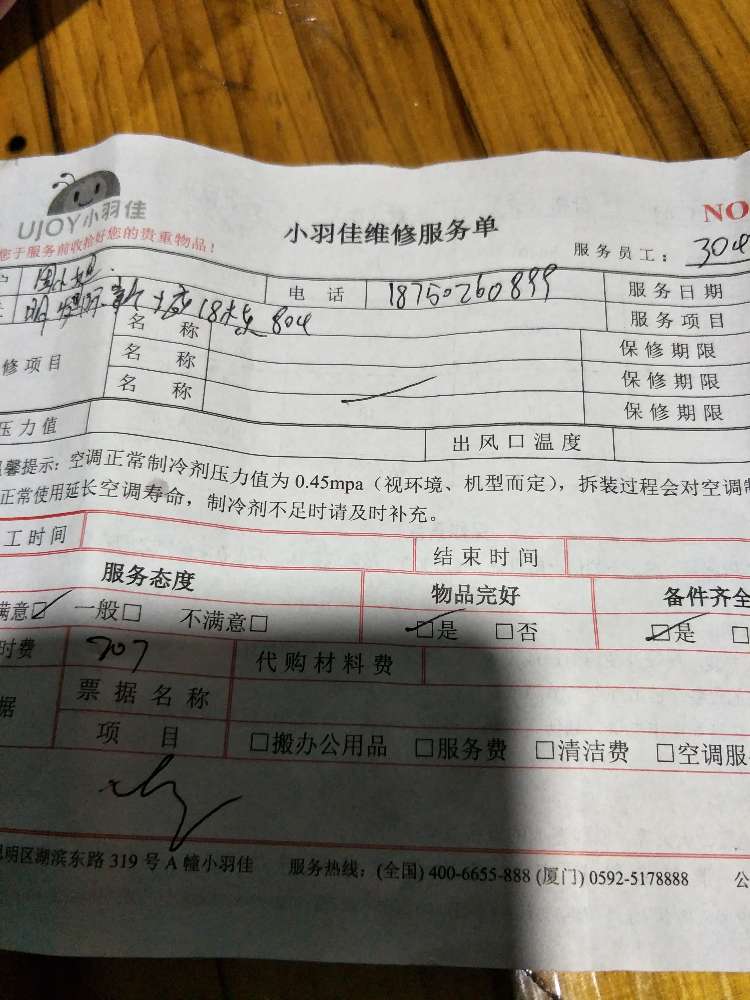 UJOY小羽佳
您于服务前收拾好您的贵重物品！
小羽佳维修服务单
NO
服务员工：304
户 周小姐 电话 18750260899 服务日期
18 804 服务项目
名称 保修期限
修项目 名称 保修期限
名称 保修期限
压力值 出风口温度
馨提示：空调正常制冷剂压力值为 0.45mpa（视环境、机型而定），拆装过程会对空调制
正常使用延长空调寿命，制冷剂不足时请及时补充。
工时间 结束时间
服务态度 物品完好 备件齐全
满意☑ 一般□ 不满意□ ☑是 □否 ☑是 □
时费 707 代购材料费
据 票据名称
项目 □搬办公用品 □服务费 □清洁费 □空调服
思明区湖滨东路 319 号 A 幢小羽佳 服务热线：(全国) 400-6655-888 (厦门) 0592-5178888 公